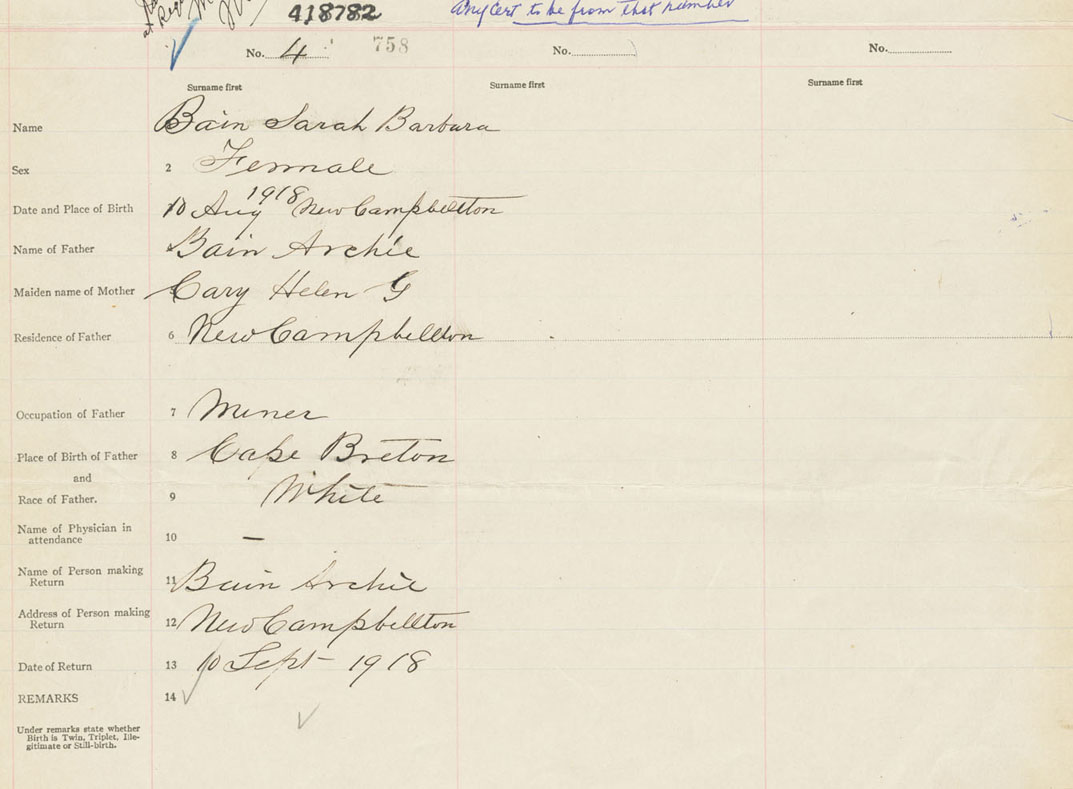 418782
any cert to be from that number
No. 4 758 No. No.
Surname first Surname first Surname first
Name Bain Sarah Barbara
Sex 2 Female
1918
Date and Place of Birth 10 Aug New Campbellton
Name of Father Bain Archie
Maiden name of Mother Cary Helen G
Residence of Father 6 New Campbellton
Occupation of Father 7 Miner
Place of Birth of Father 8 Cape Breton
and
Race of Father. 9 White
Name of Physician in
attendance 10 —
Name of Person making
Return 11 Bain Archie
Address of Person making
Return 12 New Campbellton
Date of Return 13 10 Sept - 1918
REMARKS 14
Under remarks state whether
Birth is Twin, Triplet, Ille-
gitimate or Still-birth.